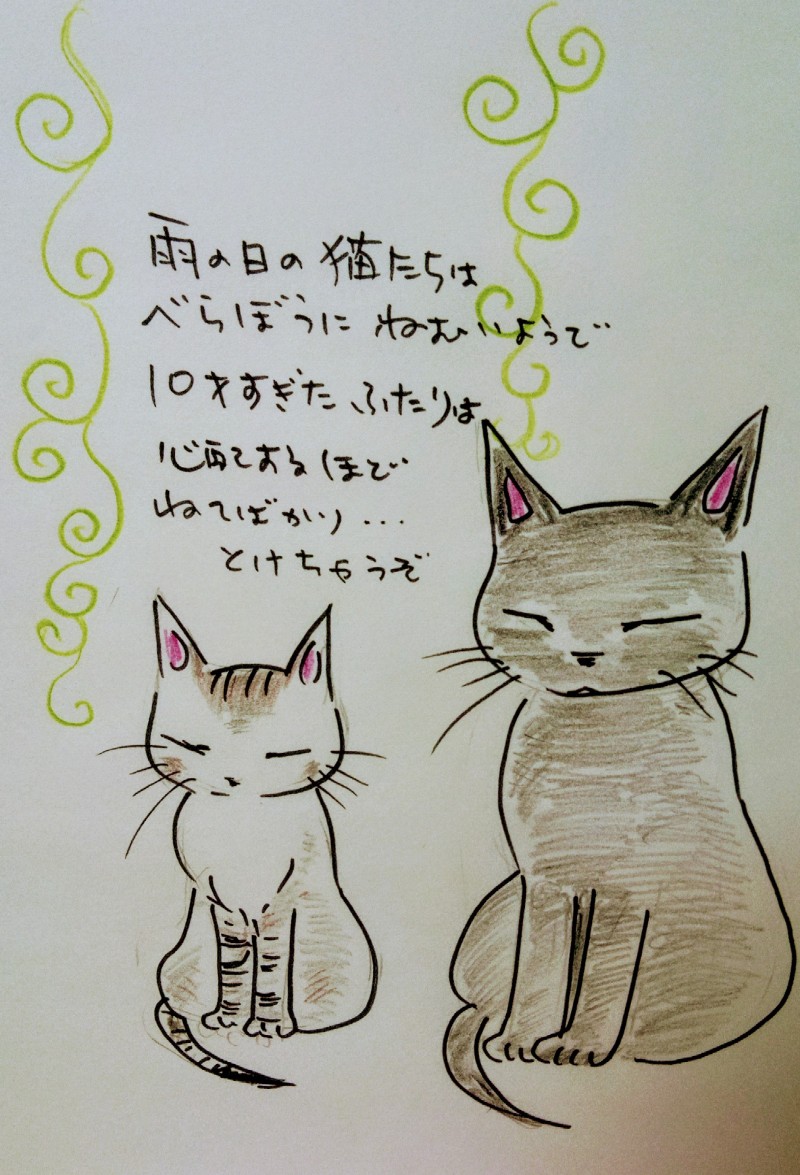 雨の日の猫たちは
べらぼうに ねむいようで
10才すぎた ふたりは
心配するほど
ねてばかり...
とけちゃうぞ